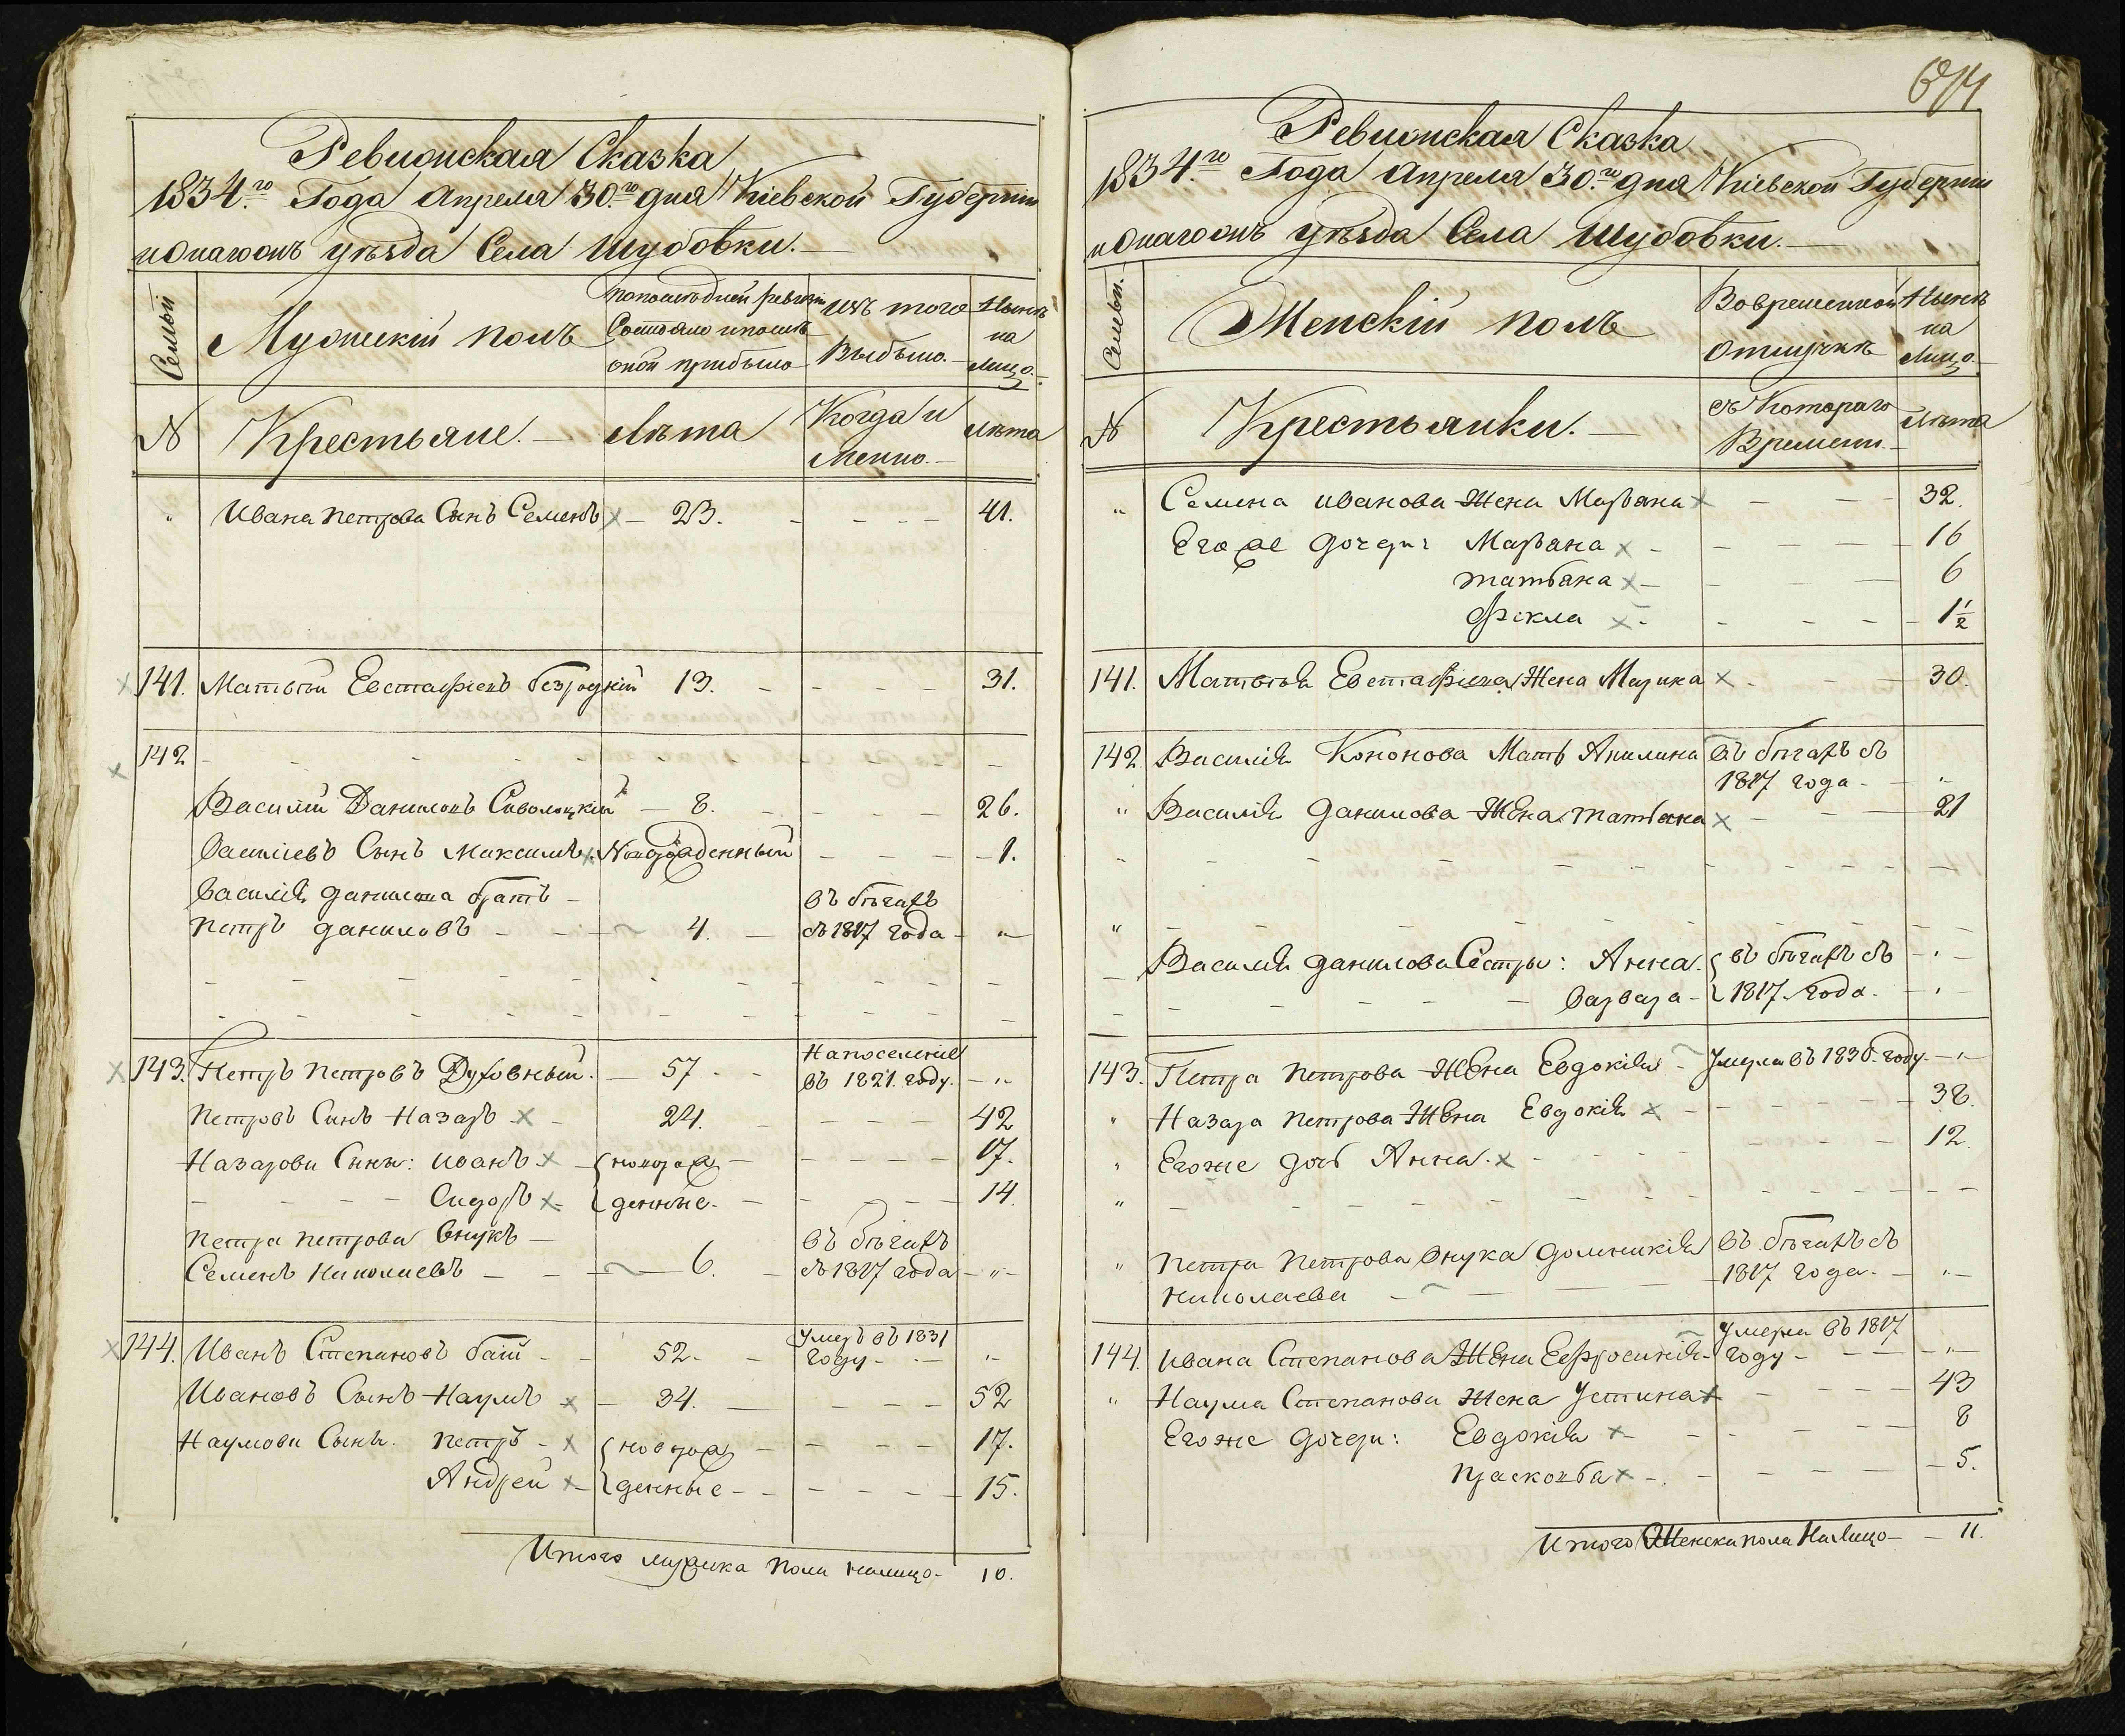 Ревизская Сказка
1834.го Года Апреля 30.го дня Кіевской Губерніи
уѣзда Села Шубовки.
Семьи
Мужескій полъ
Состояло и послѣ
оной прибыло
изъ того
выбыло.
Нынѣ
на
лицо.
№
Крестьяне.
Лѣта
Когда и
менно.
Лѣта
" Ивана Петрова Сынъ Семенъ 23. 41.
141. Матвѣй Евстафіевъ безродній 13. 31.
142
Василій Даниловъ 8. 26.
Василіевъ Сынъ Максимъ Новорожденный 1.
Василія Данилова братъ въ бѣгахъ
Петръ Даниловъ 4. съ 1817 года "
143. Петръ Петровъ Духовный. 57 На поселеніе
въ 1821. году. "
Петровъ Синъ Назаръ 24. 42
Назарови Сины: Иванъ новорож 17.
Сидоръ денные. 14.
Петра Петрова внукъ въ бѣгахъ
Семенъ Николаевъ 6. съ 1817 года "
144. Иванъ Степановъ 52. Умеръ въ 1831
году "
Ивановъ Сынъ Наумъ 34. 52
Наумови Сыны. Петръ новорож 17.
Андрей денные 15.
Итого мужска пола налицо 10.
Ревизская Сказка
1834.го Года Апреля 30.го дня Кіевской Губерніи
уѣзда Села Шубовки.
Семьи.
Женскій полъ
Во временной
отлучкѣ
Нынѣ
на
Лицо.
№
Крестьянки.
съ Котораго
Времени.
Лѣта
" Семена Иванова Жена Маріана 32.
Его же дочери: Маріана 16
Татьяна 6
Фекла 1½
141. Матвѣя Евстафіева Жена Марина 30.
142. Василія Кононова Мать Акилина въ бѣгахъ съ
1817 года. "
" Василія Данилова Жена Татьяна 21
Василія Данилова Сестры: Анна. въ бѣгахъ съ "
Варвара 1817 года. "
143. Петра Петрова Жена Евдокія Умерла въ 1830. году. "
" Назара Петрова Жена Евдокія 38.
" Егоже дочь Анна. 12.
" Петра Петрова внука Домникія въ бѣгахъ съ
Николаева 1817 года. "
144. Ивана Степанова Жена Евфросинія Умерла въ 1817
году "
" Наума Степанова Жена Устина 43
Егоже дочери: Евдокія 8
Прасковья 5.
Итого Женска пола На Лицо 11.